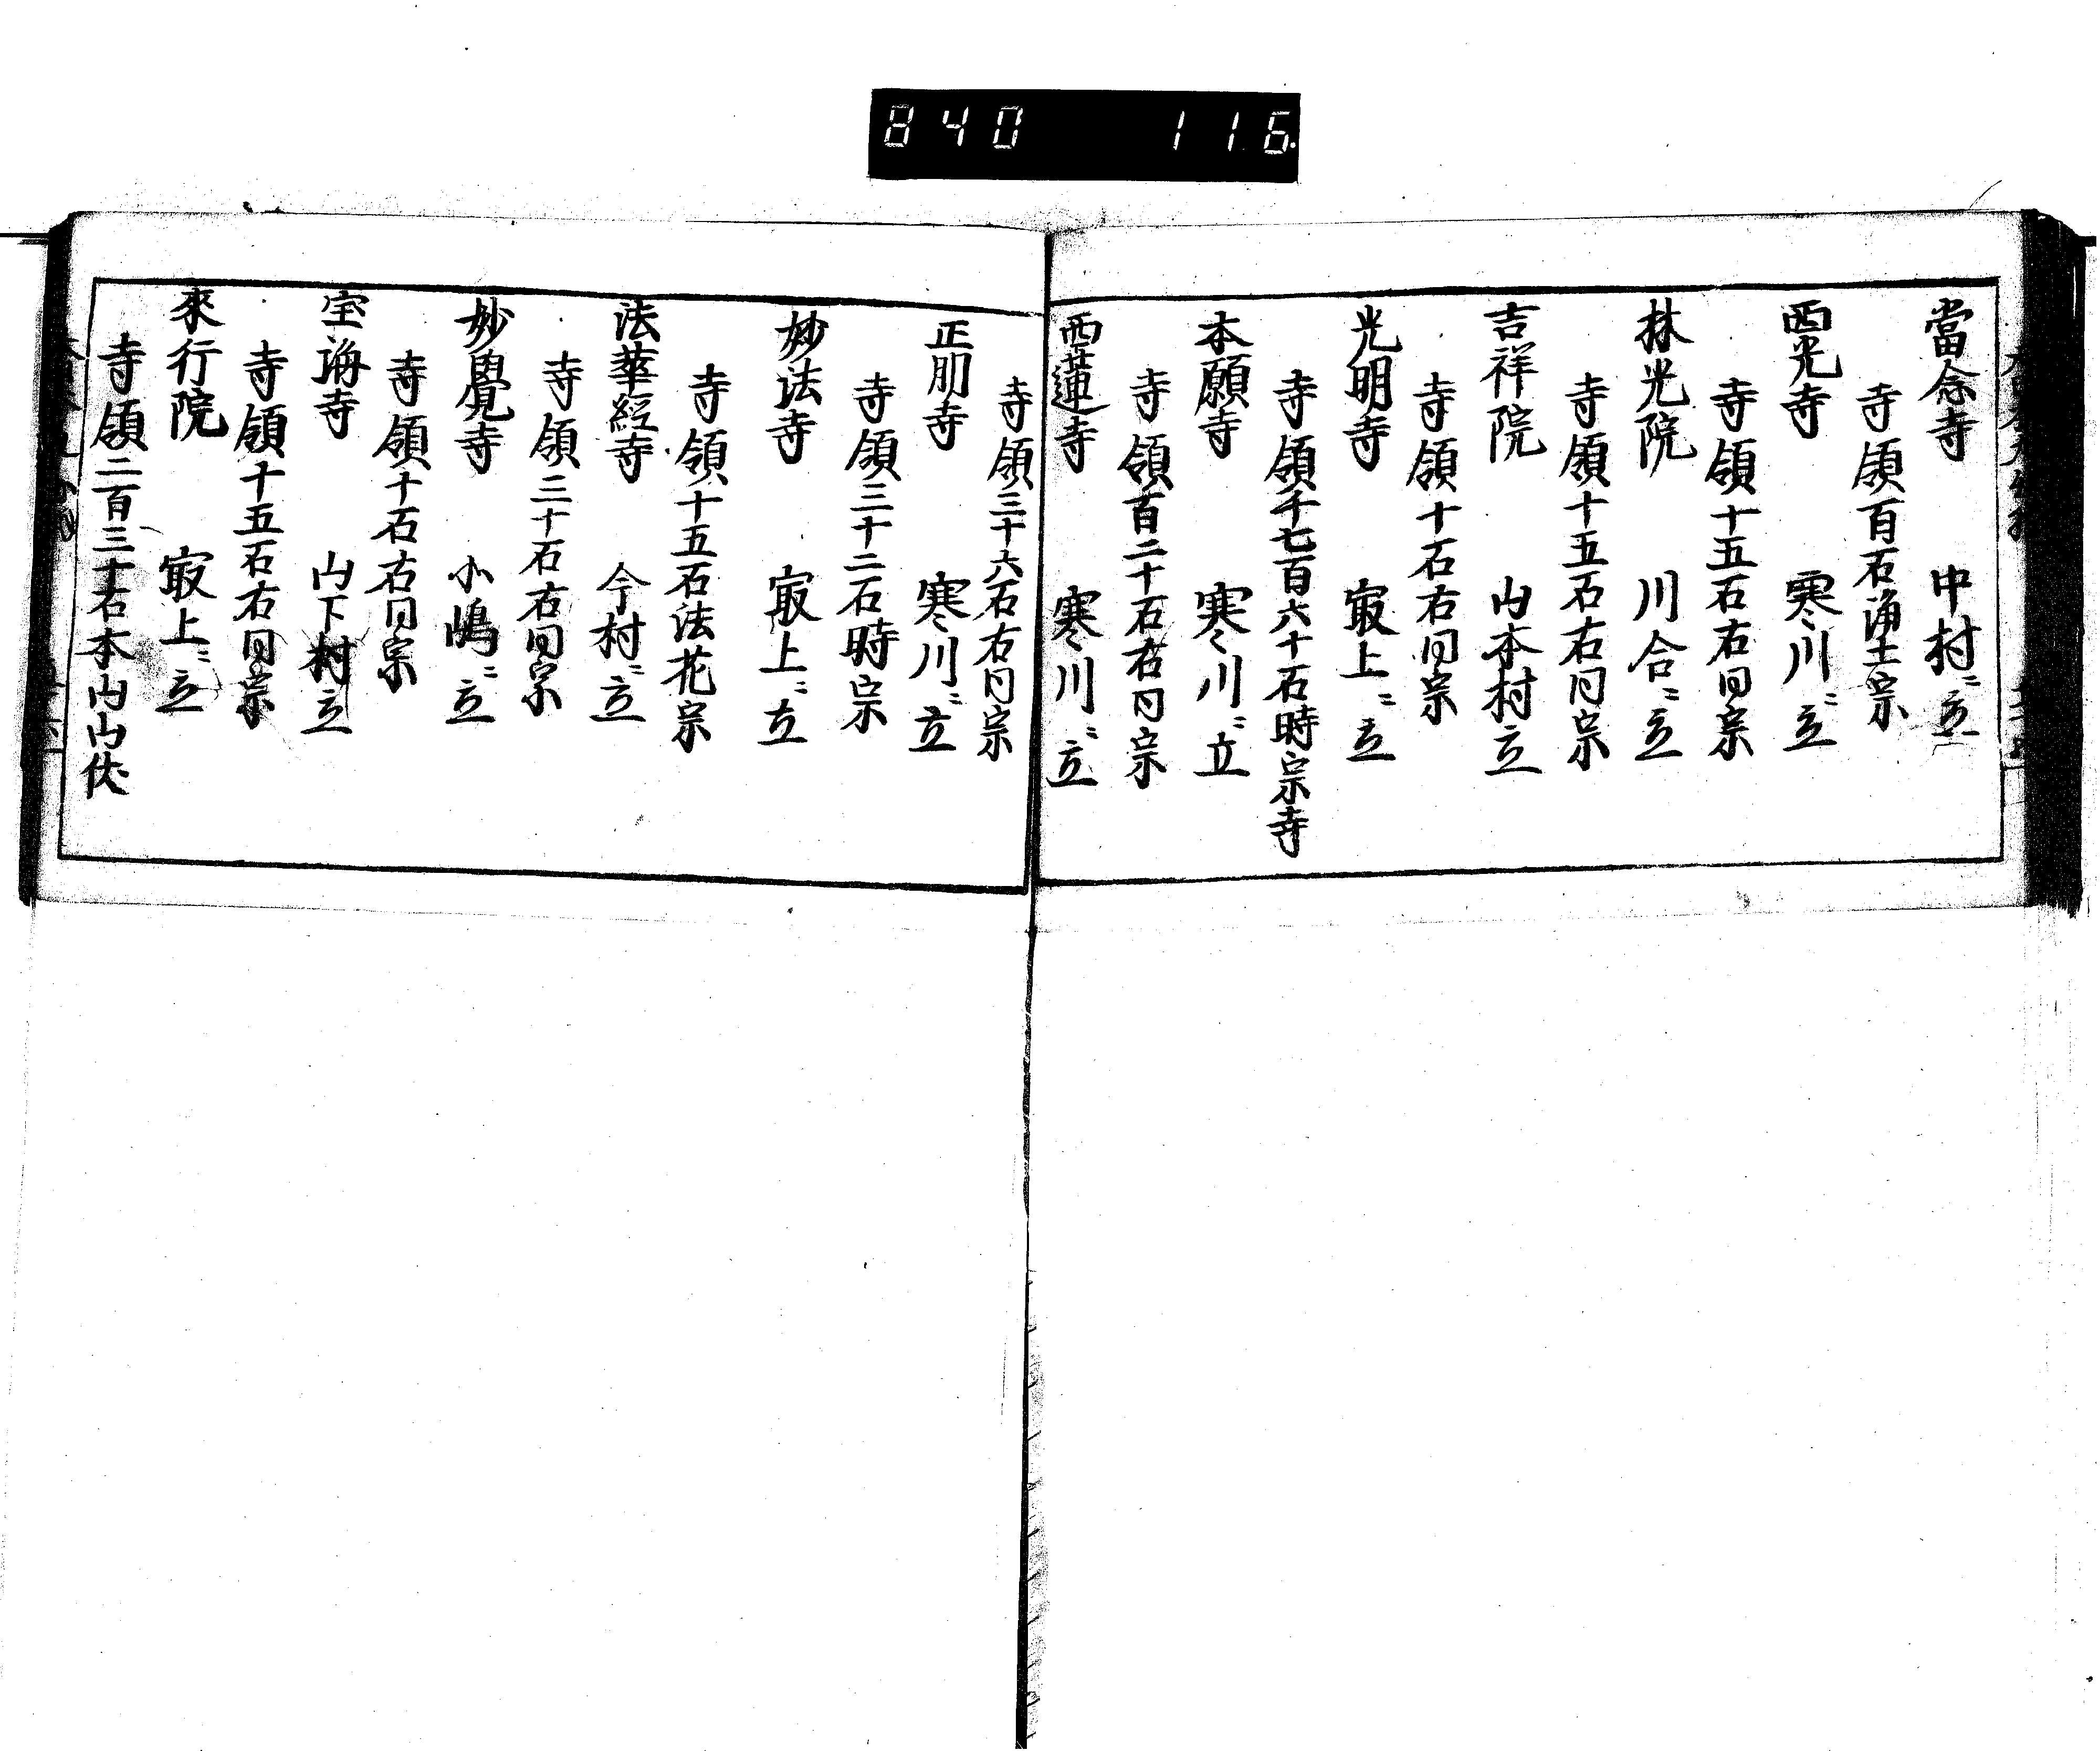 840 116
當念寺 中村ニ立
寺領百石浄土宗
西光寺 寒川ニ立
寺領十五石右同宗
林光院 川合ニ立
寺領十五石右同宗
吉祥院 山本村立
寺領十石右同宗
光明寺 寂上ニ立
寺領千七百六十石時宗寺
本願寺 寒川ニ立
寺領百二十石右同宗
西蓮寺 寒川ニ立
寺領三十六石右同宗
正明寺 寒川ニ立
寺領三十二石時宗
妙法寺 寂上ニ立
寺領十五石法花宗
法華経寺 今村ニ立
寺領三十石右同宗
妙覺寺 小嶋ニ立
寺領十石右同宗
宝海寺 山下村立
寺領十五石右同宗
来行院 寂上ニ立
寺領二百三十石本山山伏